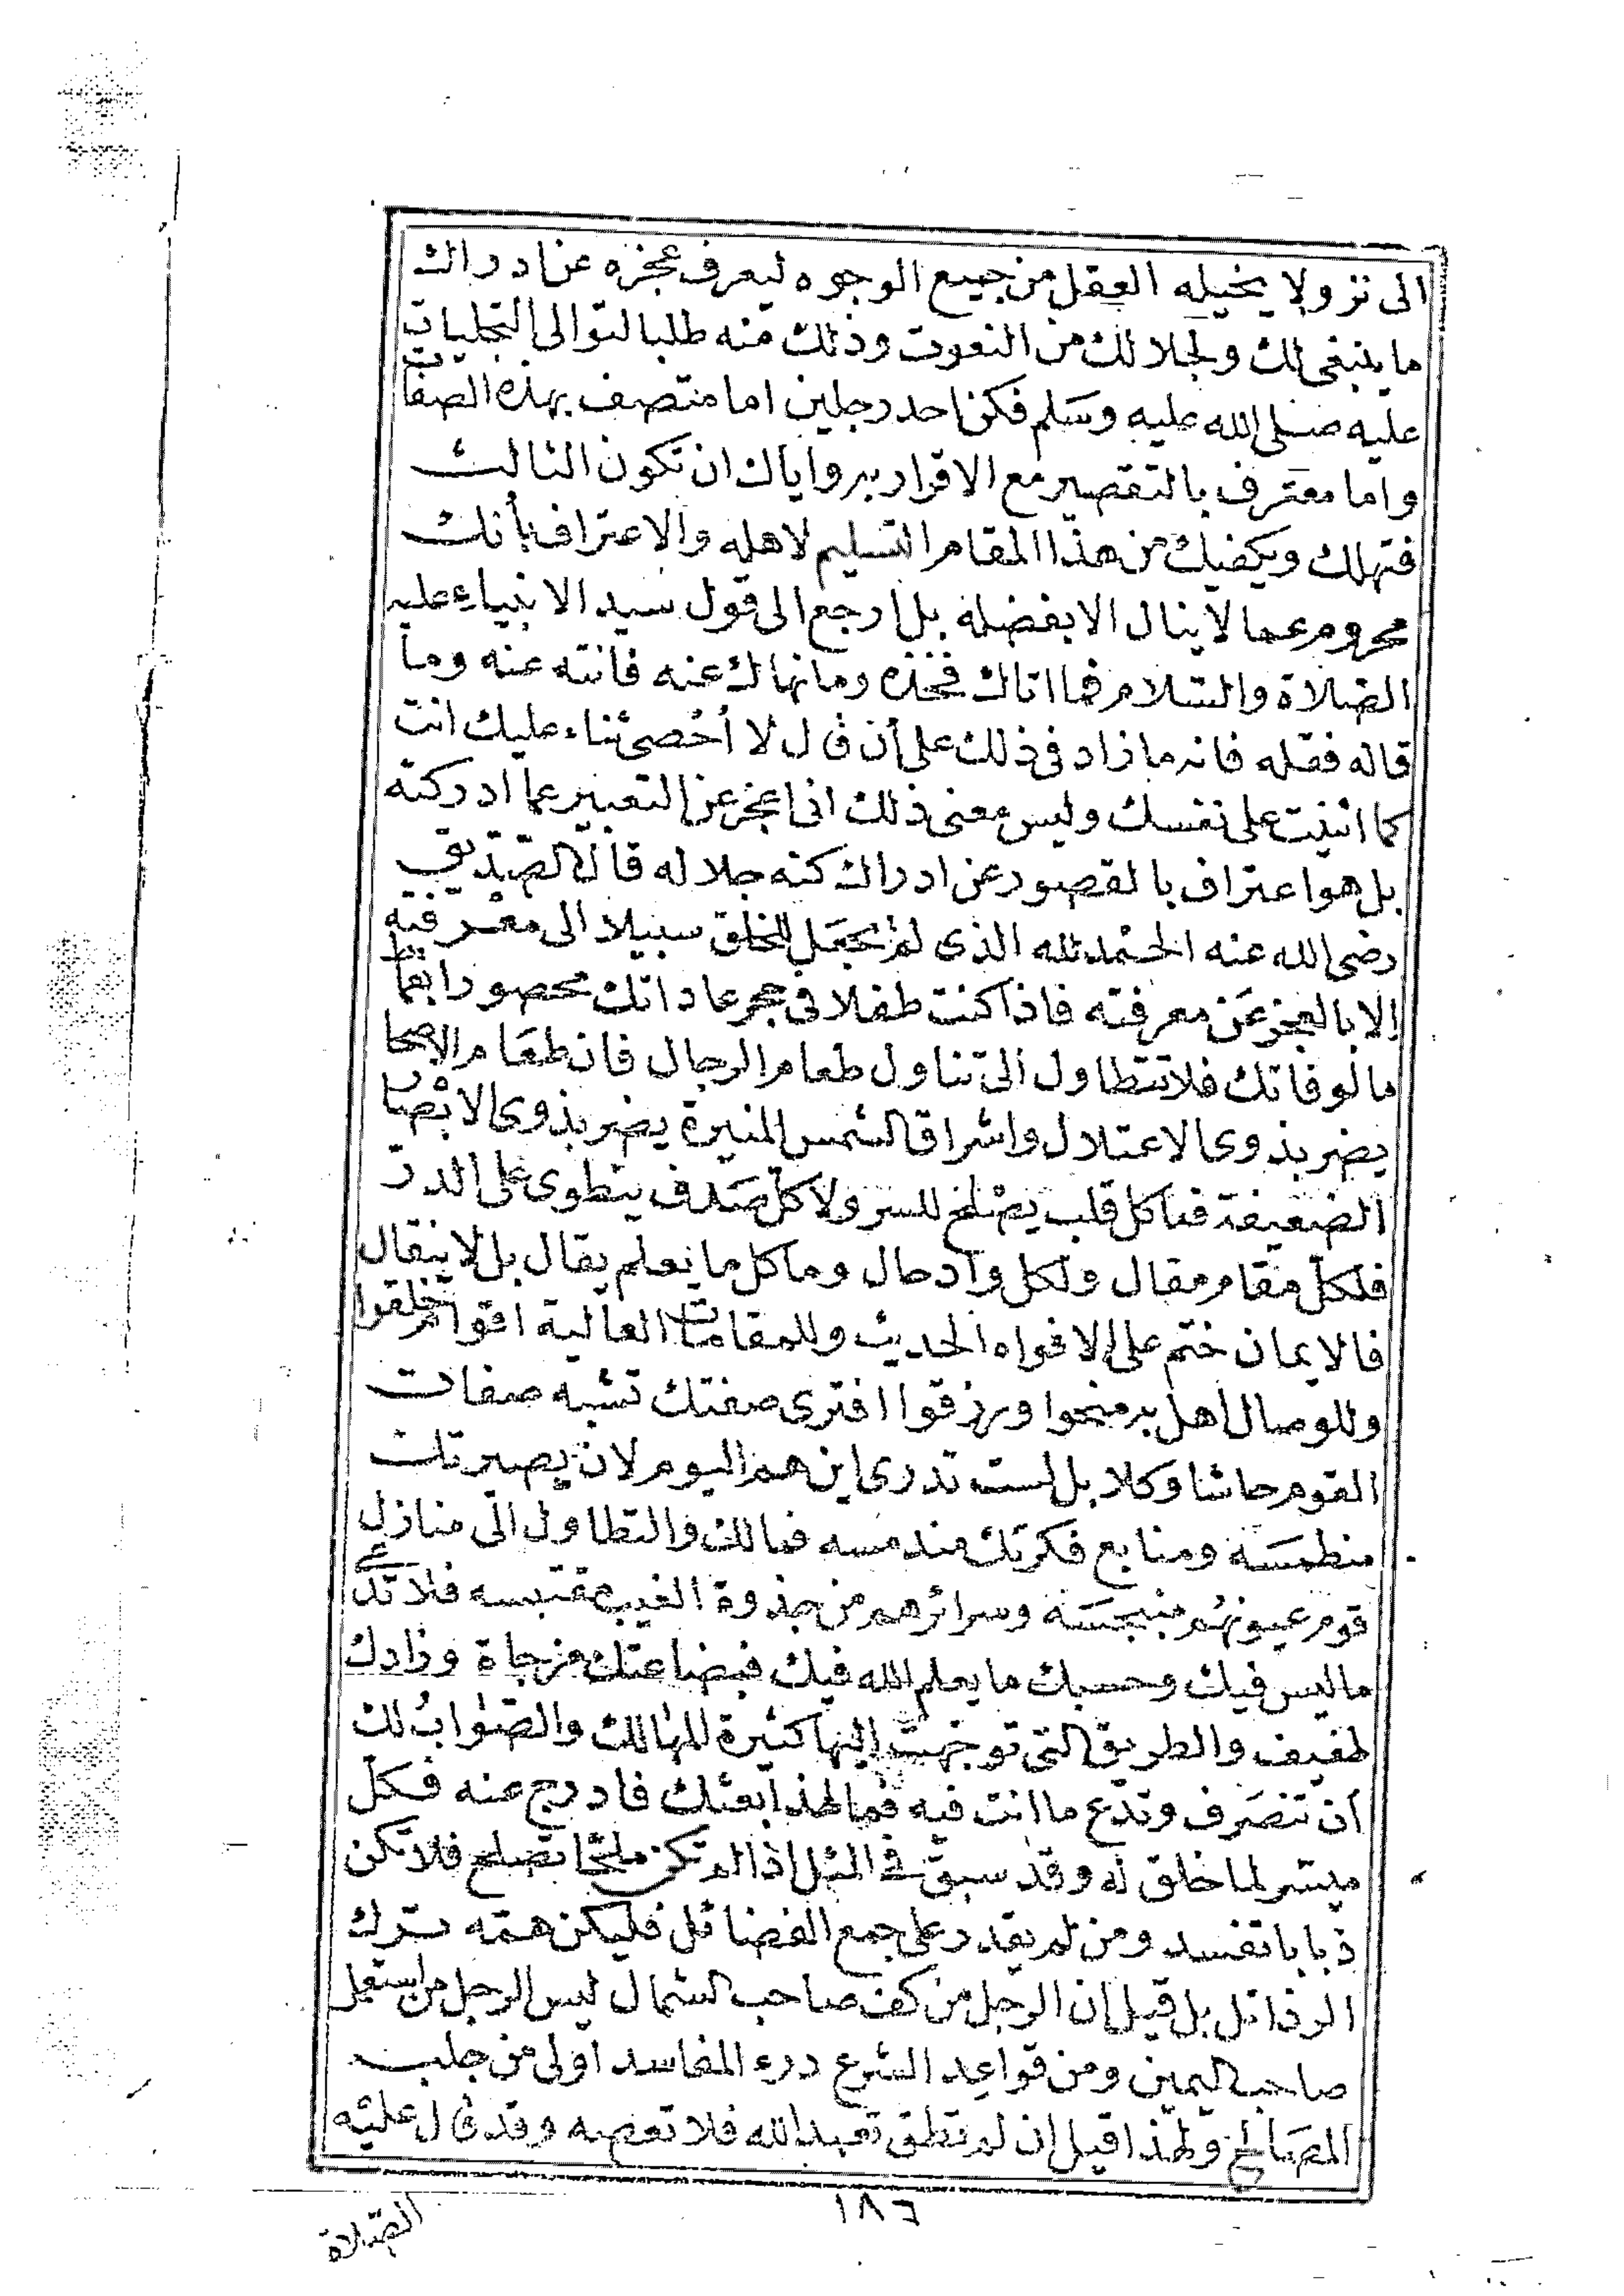 الى نزولا يخيله العقل من جميع الوجوه ليعرف عجزه عن ادراك
ما ينبغى لك ولجلالك من النعوت وذلك منه طلبا لتوالى التجليات
عليه صلى الله عليه وسلم فكن احد رجلين اما متصف بهذه الصفات
واما معترف بالتقصير مع الاقرار به واياك ان تكون الثالث
فتهلك ويكفيك من هذا المقام التسليم لاهله والاعتراف بأنك
محروم عما لا ينال الا بفضله بل ارجع الى قول سيد الانبياء عليه
الصلاة والسلام فما اتاك فخذه وما نهاك عنه فانته عنه وما
قاله فقله فانه ما زاد فى ذلك على أن قال لا أحصى ثناء عليك انت
كما اثنيت على نفسك وليس معنى ذلك انى اعجز عن التعبير عما ادركته
بل هو اعتراف بالقصور عن ادراك كنه جلاله قال الصديق
رضى الله عنه الحمد لله الذى لم يجعل للخلق سبيلا الى معرفته
إلا بالعجز عن معرفته فاذا كنت طفلا فى حجر عاداتك محصورا بقماط
مالوفاتك فلا تتطاول الى تناول طعام الرجال فان طعام الاصحا
يضر بذوى الاعتلال واشراق الشمس المنيرة يضر بذوى الابصار
الضعيفة فما كل قلب يصلح للسر ولا كل صدف ينطوى على الدر
فلكل مقام مقال ولكل واد حال وما كل ما يعلم يقال بل لا ينقال
فالايمان ختم على الافواه الحديث وللمقامات العالية اقوام خلقوا
وللوصال اهل به منحوا ورزقوا افترى صفتك تشبه صفات
القوم حاشا وكلا بل لست تدرى اين هم اليوم لان بصيرتك
منطمسة ومنابع فكرتك مندمسه فمالك والتطاول الى منازل
قوم عيونهم منبجسة وسرائرهم من جذوة الغيب مقتبسه فلا تدع
ما ليس فيك وحسبك ما يعلم الله فيك فبضاعتك مزجاة وزادك
طفيف والطريق التى توجهت اليها كثيرة المهالك والصواب لك
أن تنصرف وتدع ما انت فيه فما لهذا بعثك فادرج عنه فكل
ميسر لما خلق له وقد سبق فى المثل اذا لم تكن ملحا تصلح فلا تكن
ذبابا تفسد ومن لم يقدر على جمع الفضائل فليكن همته ترك
الرذائل بل قيل ان الرجل من كف صاحب الشمال ليس الرجل من استعمل
صاحب اليمين ومن قواعد الشرع درء المفاسد اولى من جلب
المصالح ولهذا قيل ان لم تطق تعبد الله فلا تعصه وقد قال عليه
١٨٦
الصلاة